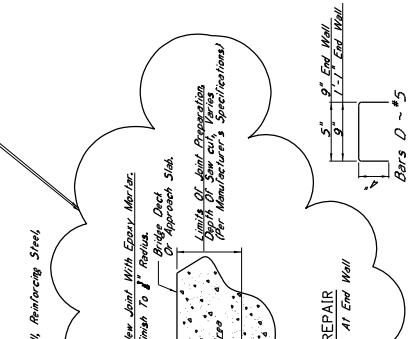 l, Reinforcing Steel,
New Joint With Epoxy Mortar.
Finish To Radius.
Bridge Deck
Or Approach Slab.
Limits Of Joint Preparation.
Depth Of Saw cut, Varies
(Per Manufacturer's Specifications)
rea
REPAIR
At End Wall
5" 9" End Wall
9" 1'-1" End Wall
4"
Bars D ~ #5